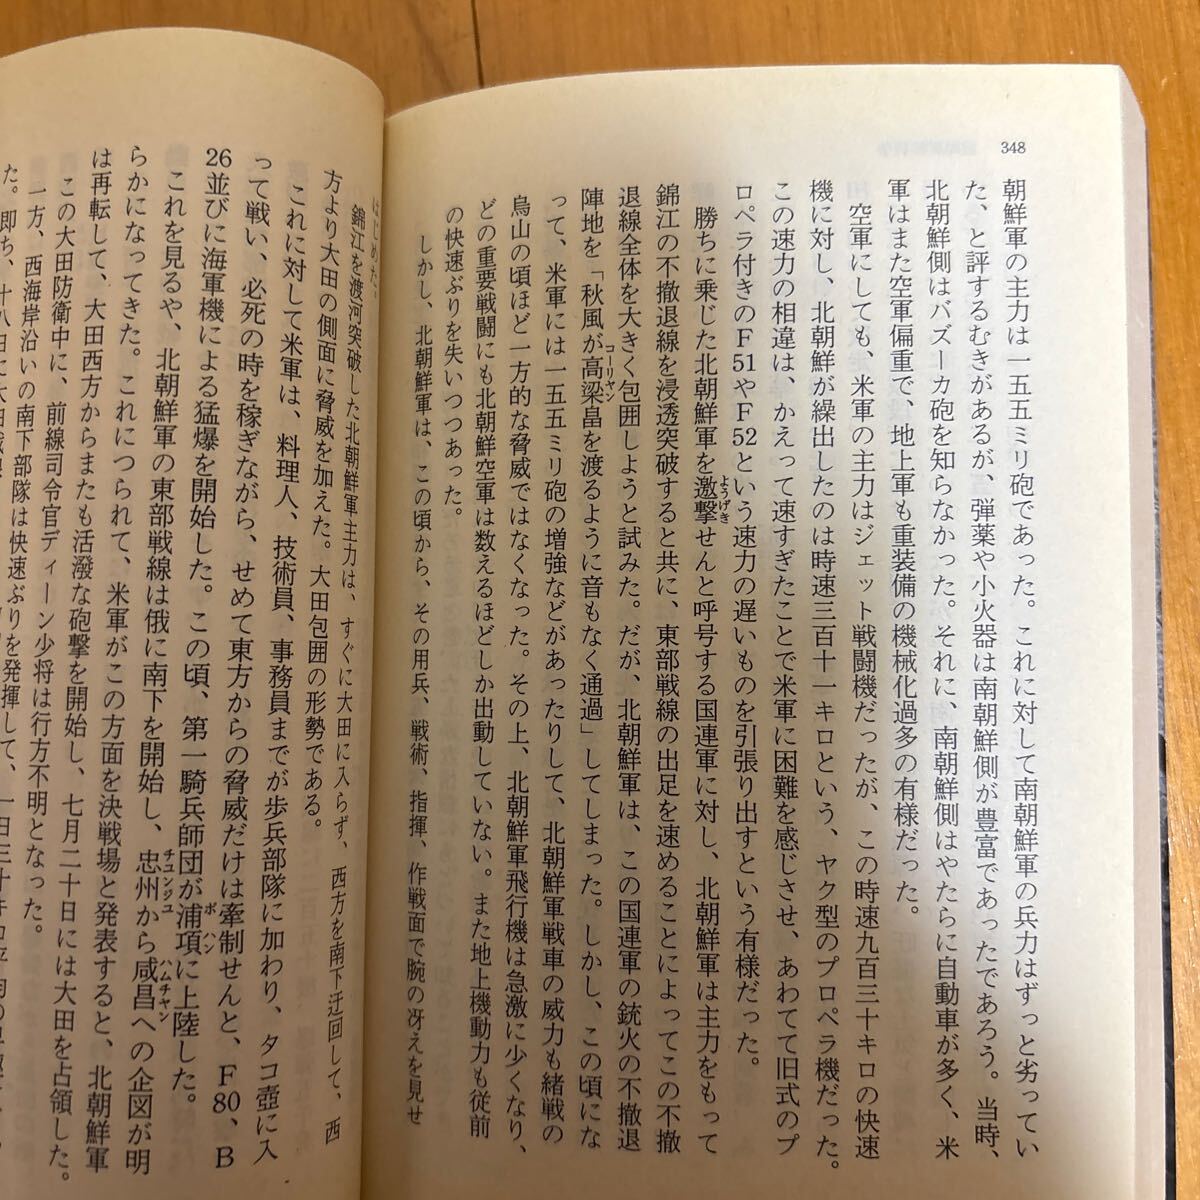 348
朝鮮軍の主力は一五五ミリ砲であった。これに対して南朝鮮軍の兵力はずっと劣ってい
た、と評するむきがあるが、弾薬や小火器は南朝鮮側が豊富であったであろう。当時、
北朝鮮側はバズーカ砲を知らなかった。それに、南朝鮮側はやたらに自動車が多く、米
軍はまた空軍偏重で、地上軍も重装備の機械化過多の有様だった。
空軍にしても、米軍の主力はジェット戦闘機だったが、この時速九百三十キロの快速
機に対し、北朝鮮が繰出したのは時速三百十一キロという、ヤク型のプロペラ機だった。
この速力の相違は、かえって速すぎたことで米軍に困難を感じさせ、あわてて旧式のプ
ロペラ付きのF51やF52という速力の遅いものを引張り出すという有様だった。
勝ちに乗じた北朝鮮軍を邀撃せんと呼号する国連軍に対し、北朝鮮軍は主力をもって
ようげき
錦江の不撤退線を浸透突破すると共に、東部戦線の出足を速めることによってこの不撤
退線全体を大きく包囲しようと試みた。だが、北朝鮮軍は、この国連軍の銃火の不撤退
陣地を「秋風が高梁畠を渡るように音もなく通過」してしまった。しかし、この頃にな
コーリヤン
って、米軍には一五五ミリ砲の増強などがあったりして、北朝鮮軍戦車の威力も緒戦の
烏山の頃ほど一方的な脅威ではなくなった。その上、北朝鮮軍飛行機は急激に少くなり、
どの重要戦闘にも北朝鮮空軍は数えるほどしか出動していない。また地上機動力も従前
の快速ぶりを失いつつあった。
しかし、北朝鮮軍は、この頃から、その用兵、戦術、指揮、作戦面で腕の冴えを見せ
はじめた。
錦江を渡河突破した北朝鮮軍主力は、すぐに大田に入らず、西方を南下迂回して、西
方より大田の側面に脅威を加えた。大田包囲の形勢である。
これに対して米軍は、料理人、技術員、事務員までが歩兵部隊に加わり、タコ壺に入
って戦い、必死の時を稼ぎながら、せめて東方からの脅威だけは牽制せんと、F80、B
26並びに海軍機による猛爆を開始した。この頃、第一騎兵師団が浦項に上陸した。
ポハン
これを見るや、北朝鮮軍の東部戦線は俄に南下を開始し、忠州から咸昌への企図が明
チユンジユ
ハムチヤン
らかになってきた。これにつられて、米軍がこの方面を決戦場と発表すると、北朝鮮軍
は再転して、大田西方からまたも活潑な砲撃を開始し、七月二十日には大田を占領した。
この大田防衛中に、前線司令官ディーン少将は行方不明となった。
一方、西海岸沿いの南下部隊は快速ぶりを発揮して、一日三十キロ平
た。即ち、十八日に